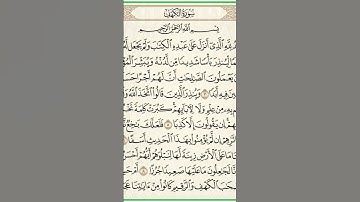 سُورَةُ الكَهْفِ
بِسْمِ اللَّهِ الرَّحْمَٰنِ الرَّحِيمِ
لِلَّهِ الَّذِي أَنزَلَ عَلَىٰ عَبْدِهِ الْكِتَٰبَ وَلَمْ يَجْعَل
لِّيُنذِرَ بَأْسًا شَدِيدًا مِّن لَّدُنْهُ وَيُبَشِّرَ
يَعْمَلُونَ الصَّٰلِحَٰتِ أَنَّ لَهُمْ أَجْرًا
فِيهِ أَبَدًا ٣ وَيُنذِرَ الَّذِينَ قَالُوا اتَّخَذَ اللَّهُ
بِهِ مِنْ عِلْمٍ وَلَا لِءَابَائِهِمْ كَبُرَتْ كَلِمَةً
إِن يَقُولُونَ إِلَّا كَذِبًا ٥ فَلَعَلَّكَ بَٰخِعٌ
إِن لَّمْ يُؤْمِنُوا بِهَٰذَا الْحَدِيثِ أَسَفًا ٦
مَا عَلَى الْأَرْضِ زِينَةً لَّهَا لِنَبْلُوَهُمْ أَيُّهُمْ
لَجَٰعِلُونَ مَا عَلَيْهَا صَعِيدًا جُرُزًا ٨ أَمْ
الْكَهْفِ وَالرَّقِيمِ كَانُوا مِنْ ءَايَٰتِنَا